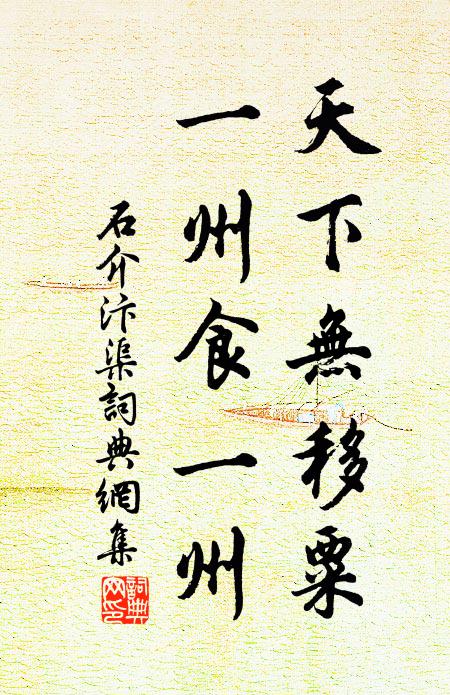 天下無移粟
一州食一州
石介汴渠詞典網集
詞典网印